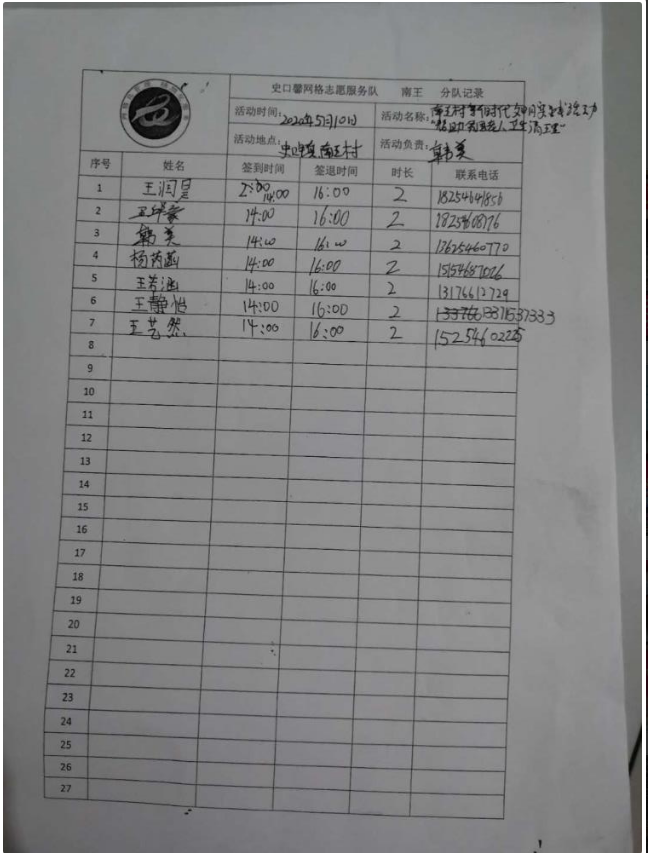 史口馨网格志愿服务队 南王 分队记录
活动时间: 2020年5月10日 活动名称: 南王村新时代文明实践活动
"帮助 老人 卫生清 "
活动地点: 史口镇南王村 活动负责: 韩美
序号 姓名 签到时间 签退时间 时长 联系电话
1 王润昱 14:00 16:00 2 18254641856
2 14:00 16:00 2 18254608176
3 韩美 14:00 16:00 2 13625460770
4 杨芮涵 14:00 16:00 2
5 王芳涵 14:00 16:00 2 13176612729
6 王静怡 14:00 16:00 2 13371537333
7 王艺然 14:00 16:00 2 15254602225
8
9
10
11
12
13
14
15
16
17
18
19
20
21
22
23
24
25
26
27